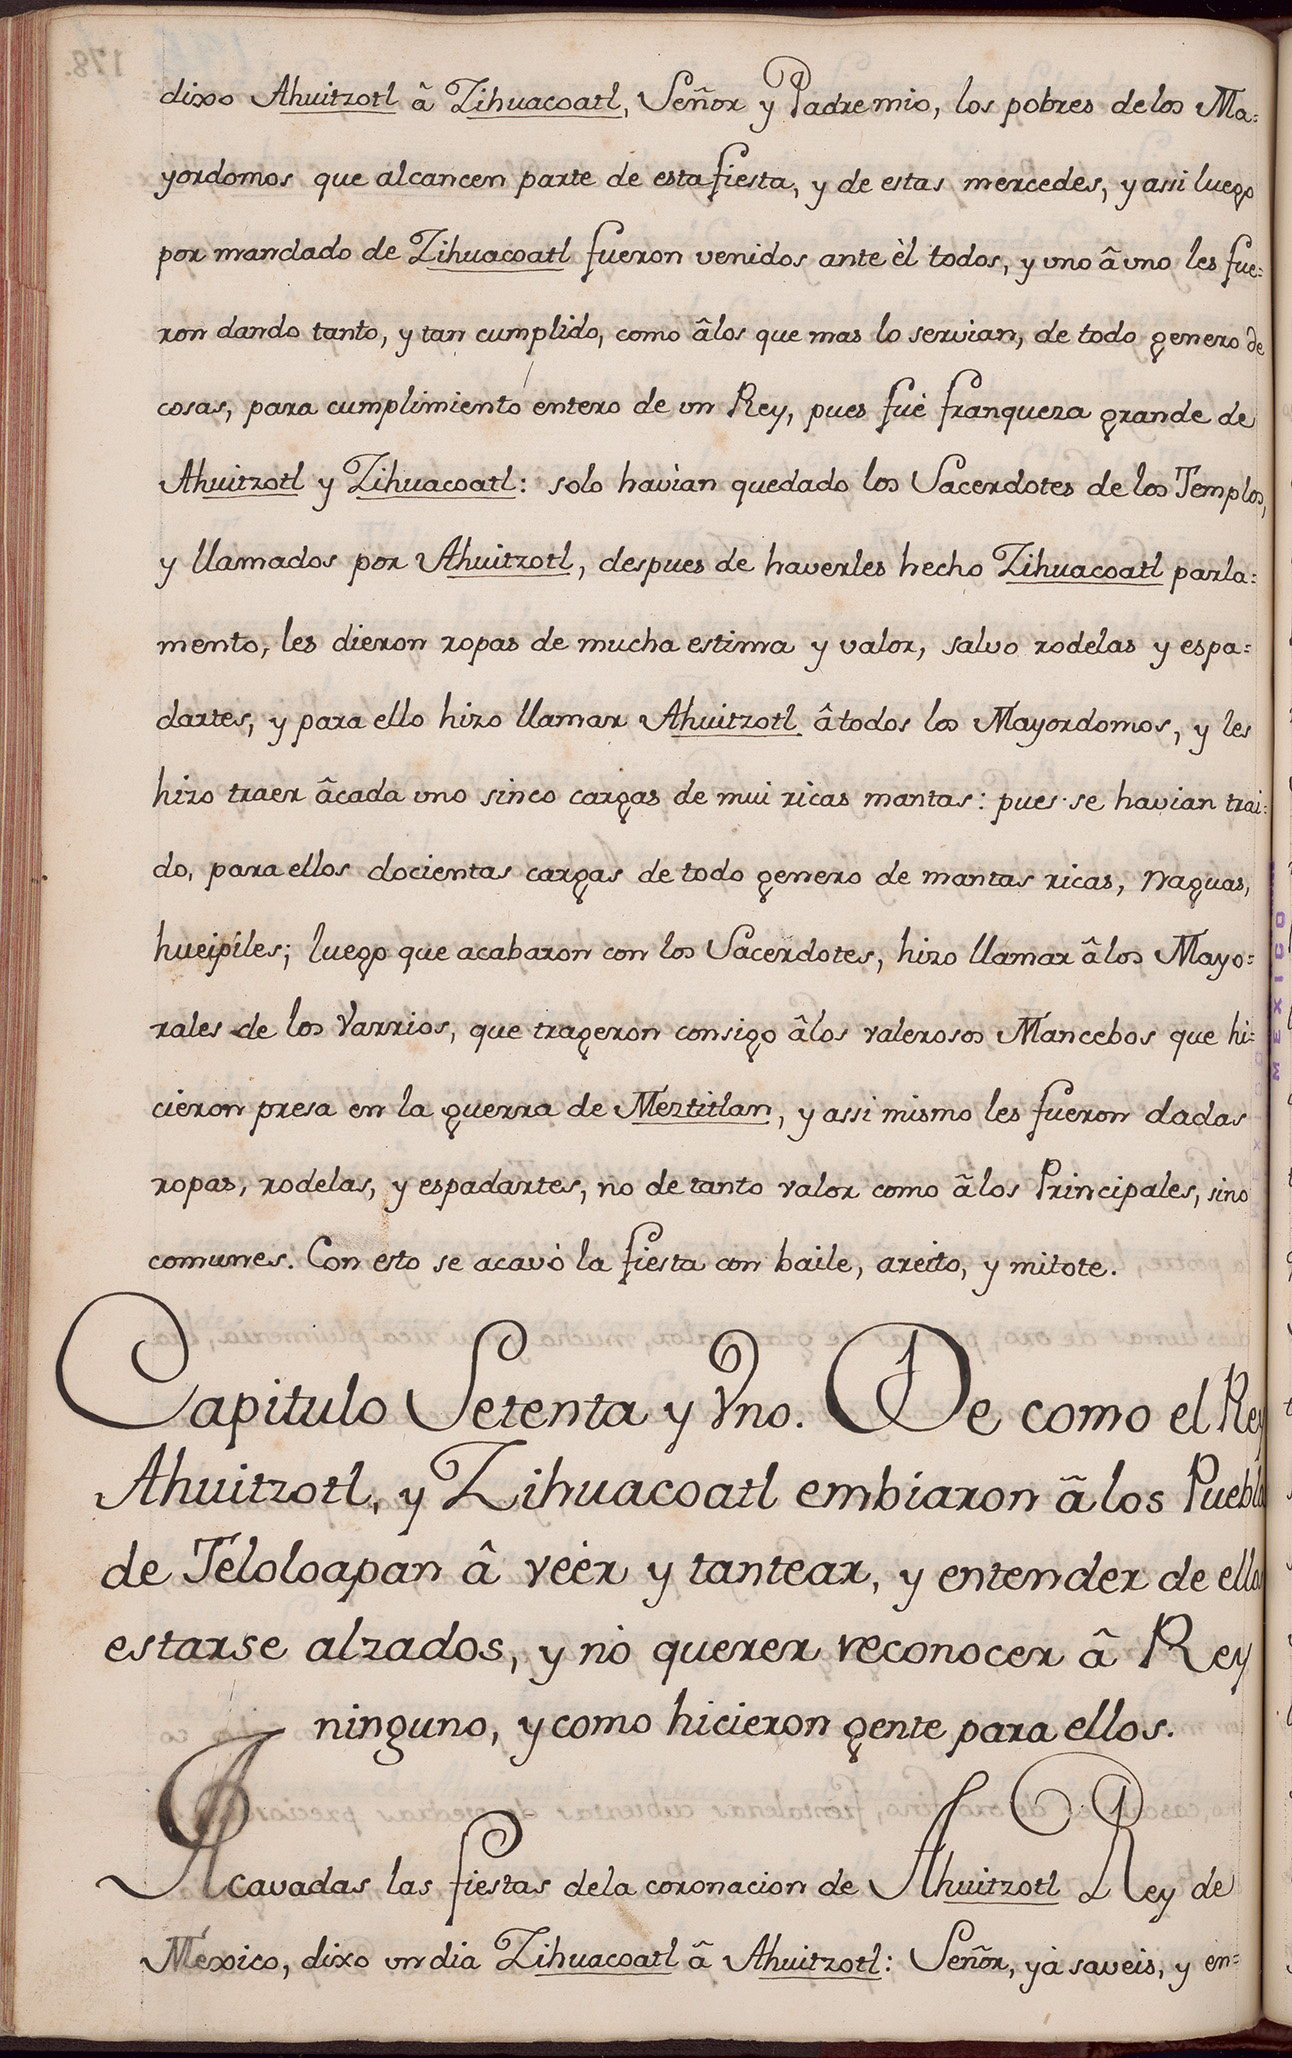 dixo Ahuitzotl â Zihuacoatl, Señor y Padre mio, los pobres de los Ma=
yordomos que alcancen parte de esta fiesta, y de estas mercedes, y assi luego
por mandado de Zihuacoatl fueron venidos ante èl todos, y uno â uno les fue=
ron dando tanto, y tan cumplido, como âlos que mas lo servian, de todo genero de
cosas, para cumplimiento entero de un Rey, pues fuè franqueza grande de
Ahuitzotl y Zihuacoatl: solo havian quedado los Sacerdotes de los Templos,
y llamados por Ahuitzotl, despues de haverles hecho Zihuacoatl parla=
mento, les dieron ropas de mucha estima y valor, salvo rodelas y espa=
dartes, y para ello hizo llamar Ahuitzotl â todos los Mayordomos, y les
hizo traer âcada uno sinco cargas de mui ricas mantas: pues se havian trai=
do, para ellos docientas cargas de todo genero de mantas ricas, naguas,
hueipiles; luego que acabaron con los Sacerdotes, hizo llamar âlos Mayo=
rales de los Varrios, que trageron consigo âlos valerosos Mancebos que hi=
cieron presa en la guerra de Meztitlan, y assi mismo les fueron dadas
ropas, rodelas, y espadartes, no de tanto valor como âlos Principales, sino
comunes. Con esto se acavò la fiesta con baile, areito, y mitote.
Capitulo Setenta y Vno. De como el Rey
Ahuitzotl, y Zihuacoatl embiaron â los Pueblos
de Teloloapan â veèr y tantear, y entender de ellos
estarse alzados, y no querer reconocer â Rey
ninguno, y como hicieron gente para ellos.
Acavadas las fiestas dela coronacion de Ahuitzotl Rey de
Mexico, dixo un dia Zihuacoatl â Ahuitzotl: Señor, yà saveis, y en=
178.
MEXICO